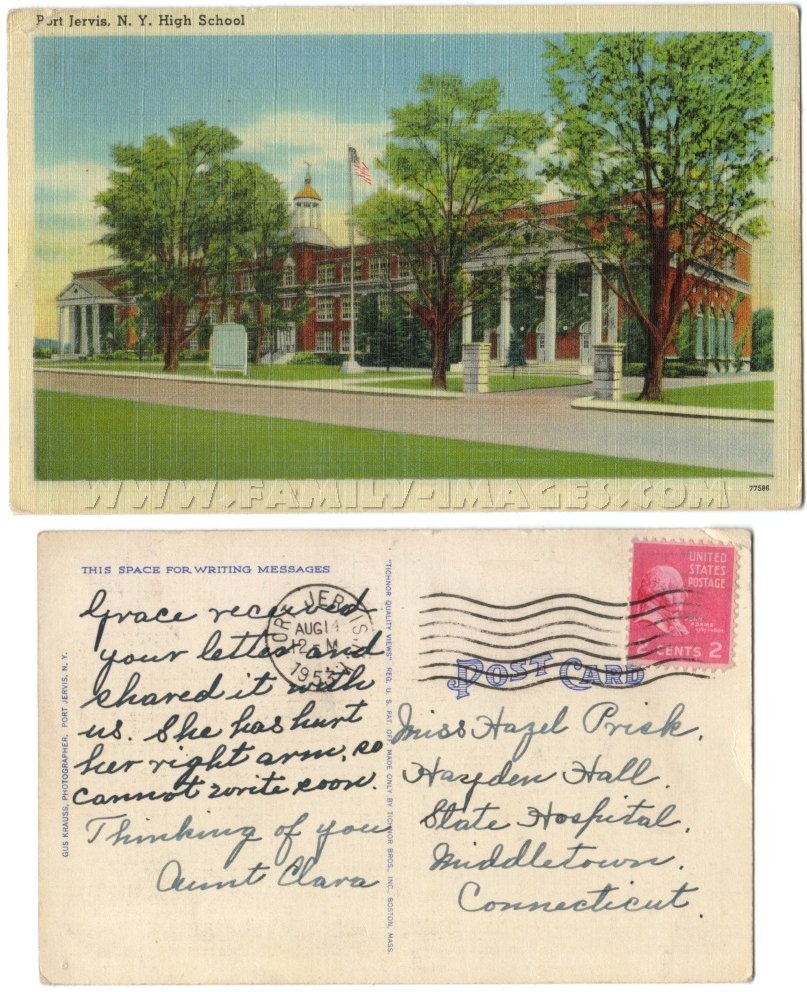 Port Jervis, N. Y. High School
77586
WWW.FAMILY-IMAGES.COM
THIS SPACE FOR WRITING MESSAGES
Grace received
your letter and
shared it with
us. She has hurt
her right arm, so
cannot write soon.
Thinking of you
Aunt Clara
GUS KRAUSS, PHOTOGRAPHER, PORT JERVIS, N. Y.
"TICHNOR QUALITY VIEWS" REG. U. S. PAT. OFF. MADE ONLY BY TICHNOR BROS., INC., BOSTON, MASS.
PORT JERVIS
AUG 14
12 M
1953
UNITED
STATES
POSTAGE
ADAMS
2 CENTS 2
POST CARD
Miss Hazel Prisk.
Hayden Hall.
State Hospital.
Middletown.
Connecticut.